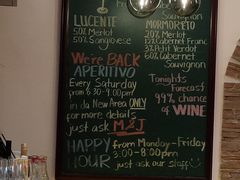 LUCENTE
50% Merlot
50% Sangiovese
MORMORETO
20% Merlot
12% Cabernet Franc
3% Petit Verdot
60% Cabernet
Sauvignon
We're BACK
APERITIVO
Every Saturday
from 6:30-9:00pm
in da New Area ONLY
for more details
just ask M&J
Tonight's
Forecast
99% chance
of WINE
HAPPY
HOUR
from Monday-Friday
3:00-8:00pm
just ask our staff